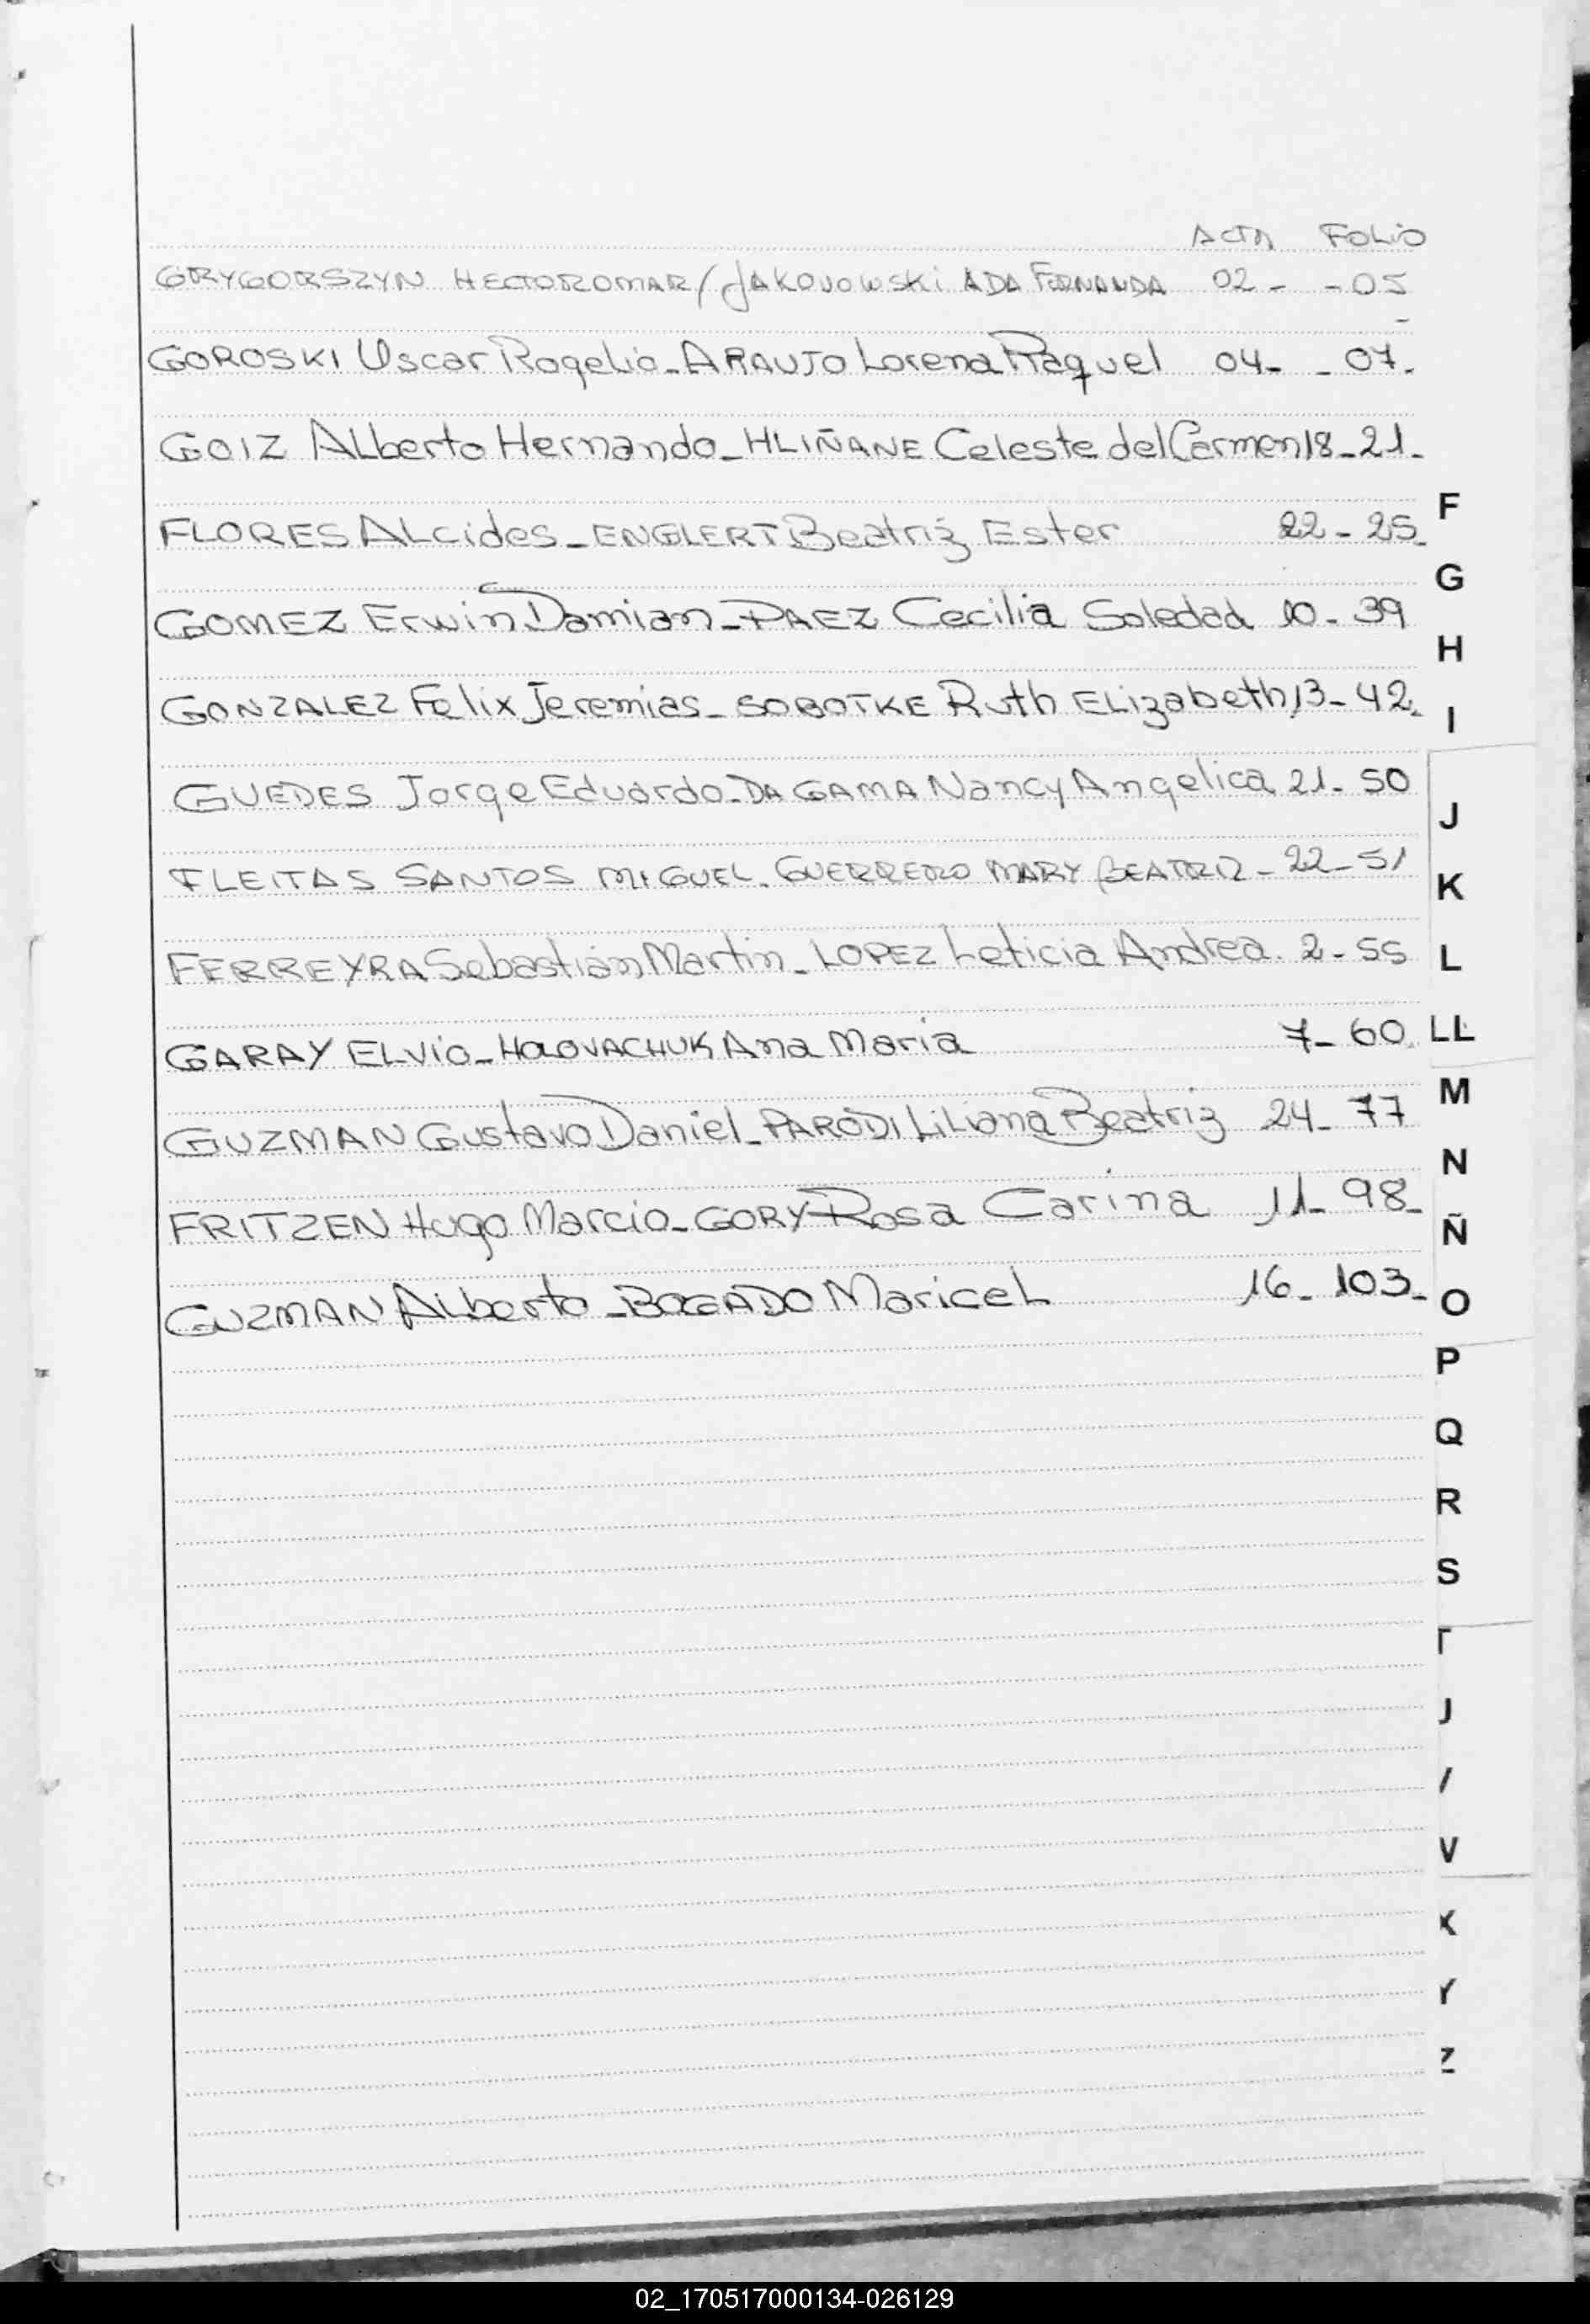 ACTA FOLIO
GRYGORSZYN HECTOR OMAR / JAKOVOWSKI ADA FERNANDA 02 - - 05
GOROSKI Oscar Rogelio - ARAUJO Lorena Raquel 04 - - 07.
GOIZ Alberto Hernando - HLIÑANE Celeste del Carmen 18 - 21 -
FLORES Alcides - ENGLERT Beatriz Ester 22 - 25 -
F
G
GOMEZ Erwin Damian - PAEZ Cecilia Soledad 10 - 39
H
GONZALEZ Felix Jeremias - SOBOTKE Ruth Elizabeth 13 - 42.
I
GUEDES Jorge Eduardo - DA GAMA Nancy Angelica 21 - 50
J
FLEITAS SANTOS MIGUEL - GUERRERO MARY BEATRIZ - 22 - 51
K
FERREYRA Sebastián Martin - LOPEZ Leticia Andrea. 2 - 55
L
GARAY ELVio - HOLOVACHUK Ana Maria 7 - 60
LL
M
GUZMAN Gustavo Daniel - PARODI Liliana Beatriz 24 - 77
N
FRITZEN Hugo Marcio - GORY Rosa Carina 11 - 98 -
Ñ
GUZMAN Alberto - BOGADO Maricel 16 - 103 -
O
P
Q
R
S
T
J
/
V
X
Y
Z
02_170517000134-026129